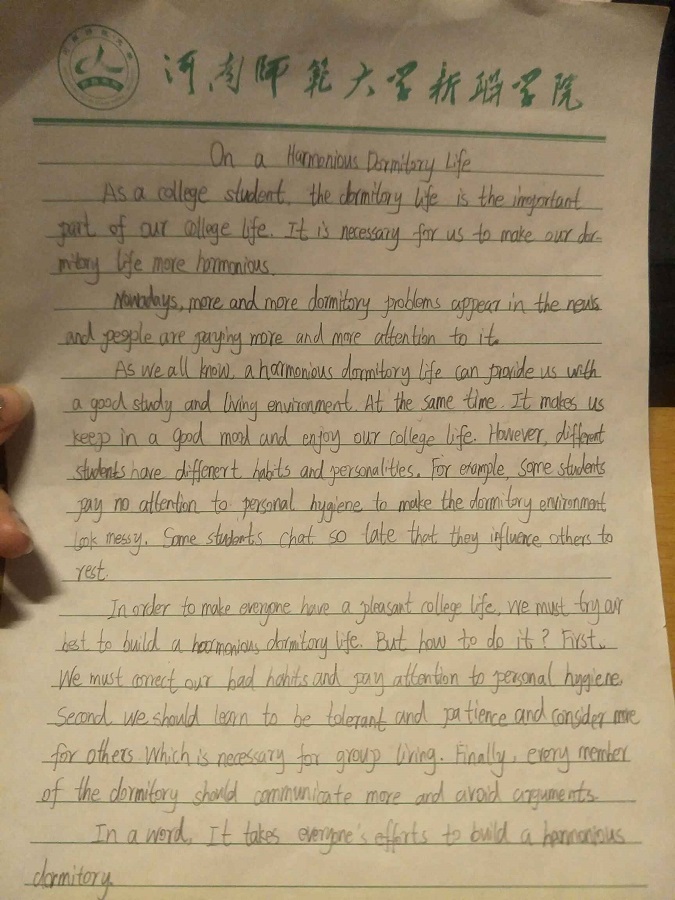 河南师范大学新联学院
On a Harmonious Dormitory Life
As a college student, the dormitory life is the important
part of our college life. It is necessary for us to make our dor-
mitory life more harmonious.
Nowadays, more and more dormitory problems appear in the news
and people are paying more and more attention to it.
As we all know, a harmonious dormitory life can provide us with
a good study and living environment. At the same time. It makes us
keep in a good mood and enjoy our college life. However, different
students have differert habits and personalities. For example, some students
pay no attention to personal hygiene to make the dormitory environment
look messy. Some students chat so late that they influence others to
rest.
In order to make everyone have a pleasant college life, we must try our
best to build a harmonious dormitory life. But how to do it? First,
We must correct our bad habits and pay attention to personal hygiene,
Second we should learn to be tolerant and patience and consider more
for others which is necessary for group living. Finally, every member
of the dormitory should communicate more and avoid arguments.
In a word, It takes everyone's efforts to build a harmonious
dormitory.